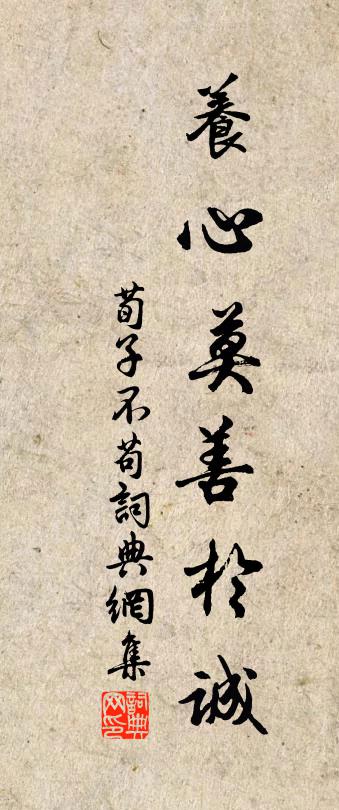 養心莫善於誠
荀子不苟詞典網集
詞典
网印